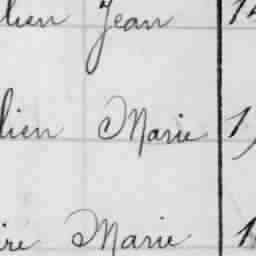 lien Jean 1
lien Marie 1
ire Marie 1